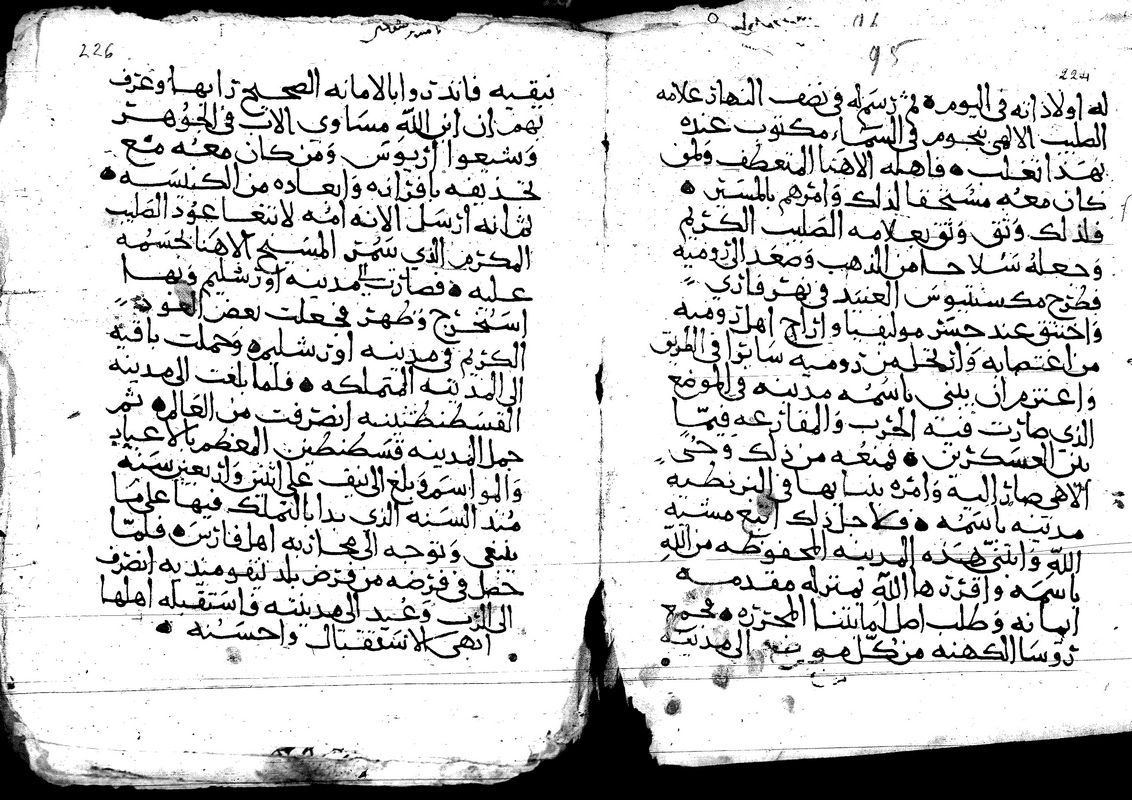 224
95
له اولاد انه في اليوم • ثم رسم له في نصف النهار علامه
الصليب الالاهي بنجوم في السماء مكتوب عنده
بهذا تغلب • فاهله الاهنا المتعطف ولمن
كان معه مستحقا لذلك وامرهم بالمسير •
فلذلك وثق وثوق بعلامه الصليب الكريم
وجعله سلاحا من الذهب وصعد الى روميه
فطرح مكسنتيوس العنيد في نهر
واختنق عند جسر موليفيا واراح اهل روميه
من اغتصابه وارتحل من روميه سايرا في الطريق
واعتزم ان يبني باسمه مدينه في الموضع
الذي صارت فيه الحرب والمقارعه فيما
بين العسكرين • فمنعه من ذلك وحي
الاهي صار اليه وامره ببنايها في البزنطيه
مدينه باسمه • فلاجل ذلك اتبع مشيه
الله وابتنى هذه المدينه المحفوظه من الله
باسمه وافردها الله بمنزله مقدمه
ايمانه وطلب اصل امانتنا المحرره • فجمع
روسا الكهنه من كل الى مدينه
226
نيقيه فانذروا بالامانه الصحيح رايها وعرف
بهم ان ابن الله مساوي الاب في الجوهر
وشيعوا اريوس ومن كان معه مع
تجذيفه بافرازه وابعاده من الكنيسه •
ثم انه ارسل الانه امه لابتغا عود الصليب
المكرم الذي سمر المسيح الاهنا جسمه
عليه • فصارت الى مدينه اورشليم وبها
استخرج وظهر فجعلت بعض العود
الكريم في مدينه اورشليم • وحملت باقيه
الى المدينه المتملكه • فلما بلغت الى مدينه
القسطنطينيه انصرفت من العالم • ثم
جمل المدينه قسطنطين المعظم بالاعياد
والمواسم وبلغ الى نيف على اثنتين واربعين سنه
منذ السنه الذي بدا بالتملك فيها على ما
ينبغي وتوجه الى محاربه اهل فارس • فلما
حصل في فرضه من فرض بلد نيقوميديه انصرف
الى الرب وعيد الى مدينته واستقبله اهلها
ابهى الاستقبال واحسنه •